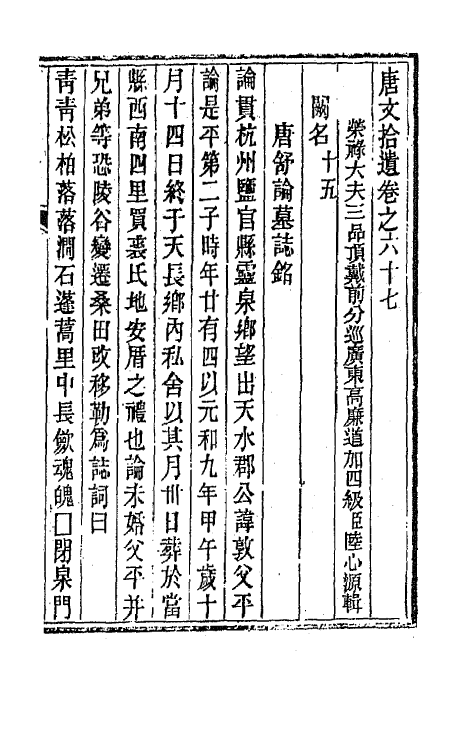 唐文拾遺卷之六十七
榮祿大夫三品頂戴前分巡廣東高廉道加四級臣陸心源輯
闕名十五
唐舒論墓誌銘
論貫杭州鹽官縣靈泉鄉望出天水郡公諱敦父平
論是平第二子時年廿有四以元和九年甲午歲十
月十四日終于天長鄉內私舍以其月卅日葬於當
縣西南四里買裘氏地安厝之禮也論未婚父平并
兄弟等恐陵谷變遷桑田改移勒爲誌詞曰
靑靑松柏落落澗石蓬蒿里中長歛魂魄□閉泉門